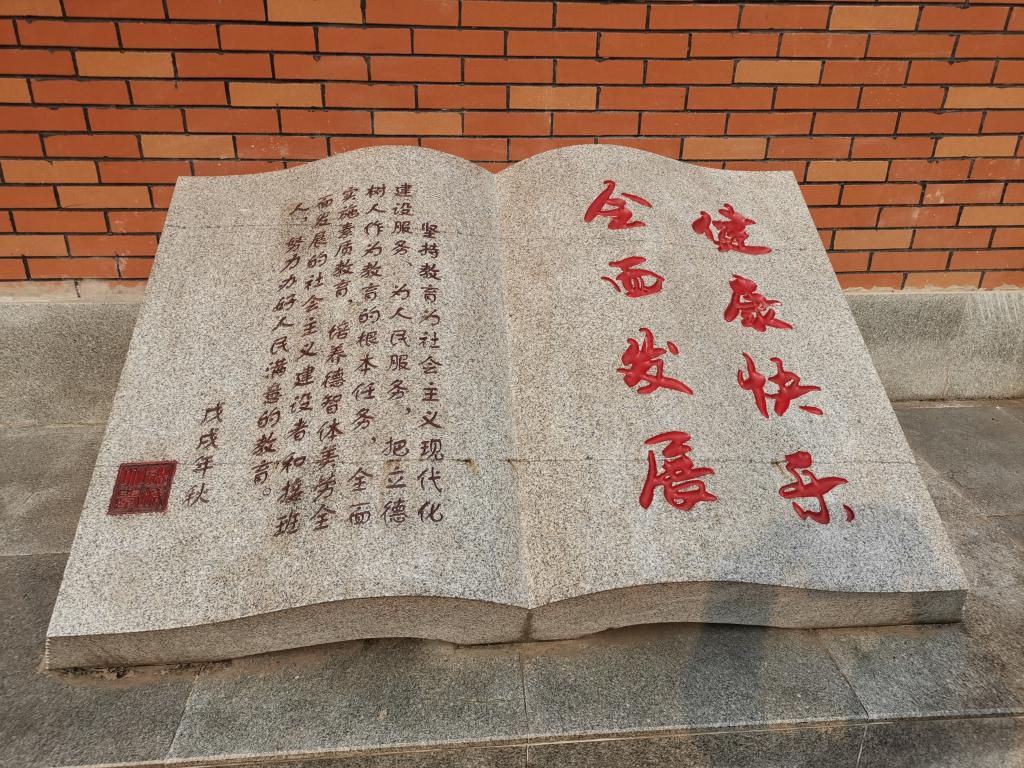 健康快乐
全面发展
坚持教育为社会主义现代化
建设服务、为人民服务，把立德
树人作为教育的根本任务，全面
实施素质教育，培养德智体美劳全
面发展的社会主义建设者和接班
人，努力办好人民满意的教育。
戊戌年秋